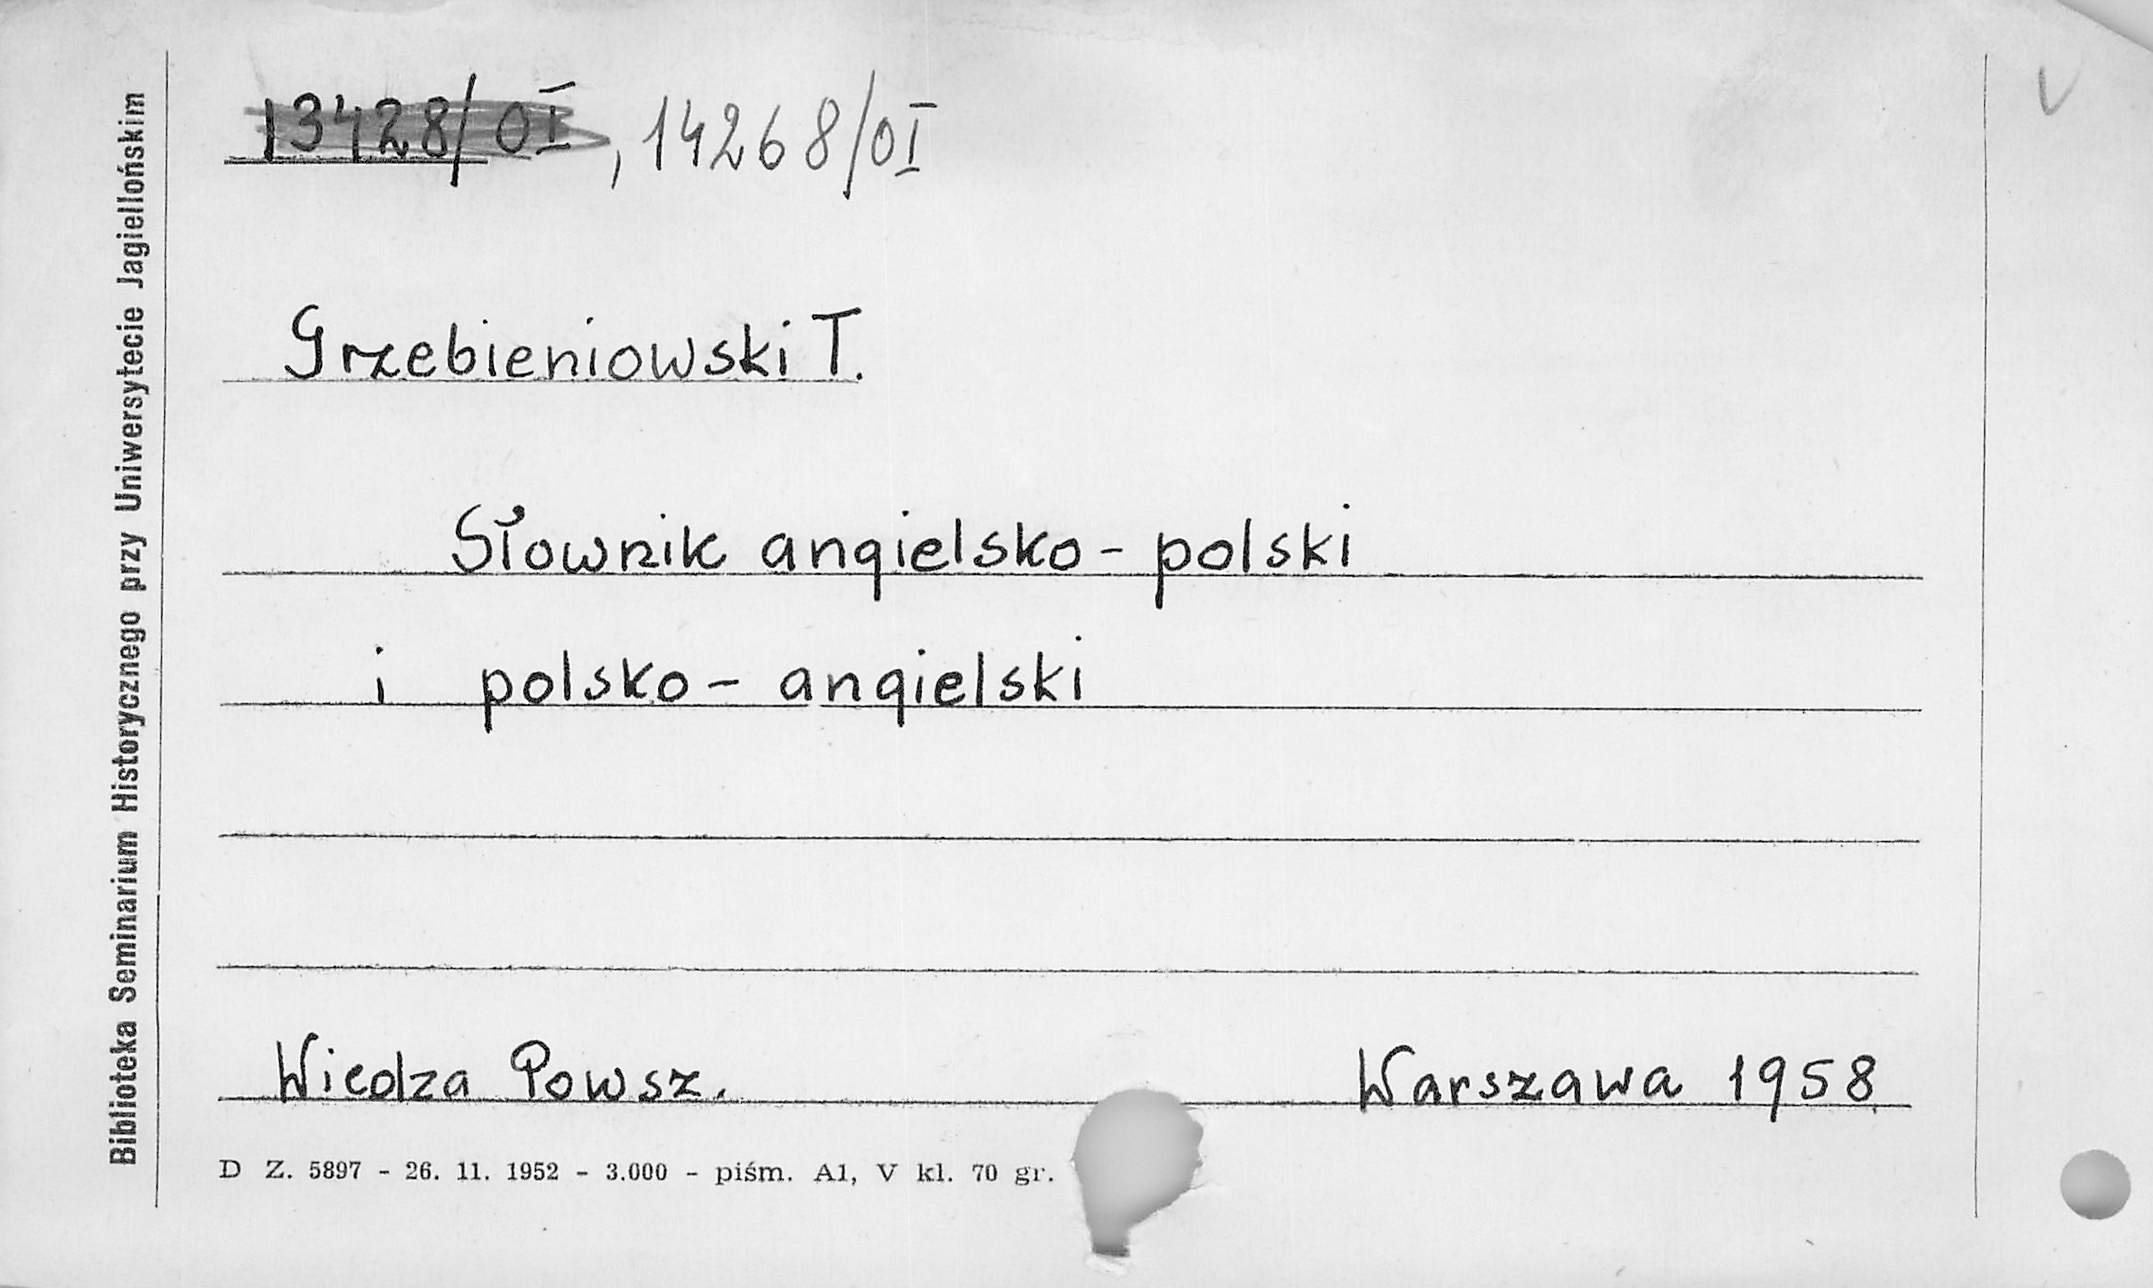 13428/OI, 14268/OI
Grzebieniowski T.
Słownik angielsko-polski
i polsko-angielski
Wiedza Powsz. Warszawa 1958
D Z. 5897 - 26. 11. 1952 - 3.000 - piśm. A1, V kl. 70 gr.
Biblioteka Seminarium Historycznego przy Uniwersytecie Jagiellońskim
V